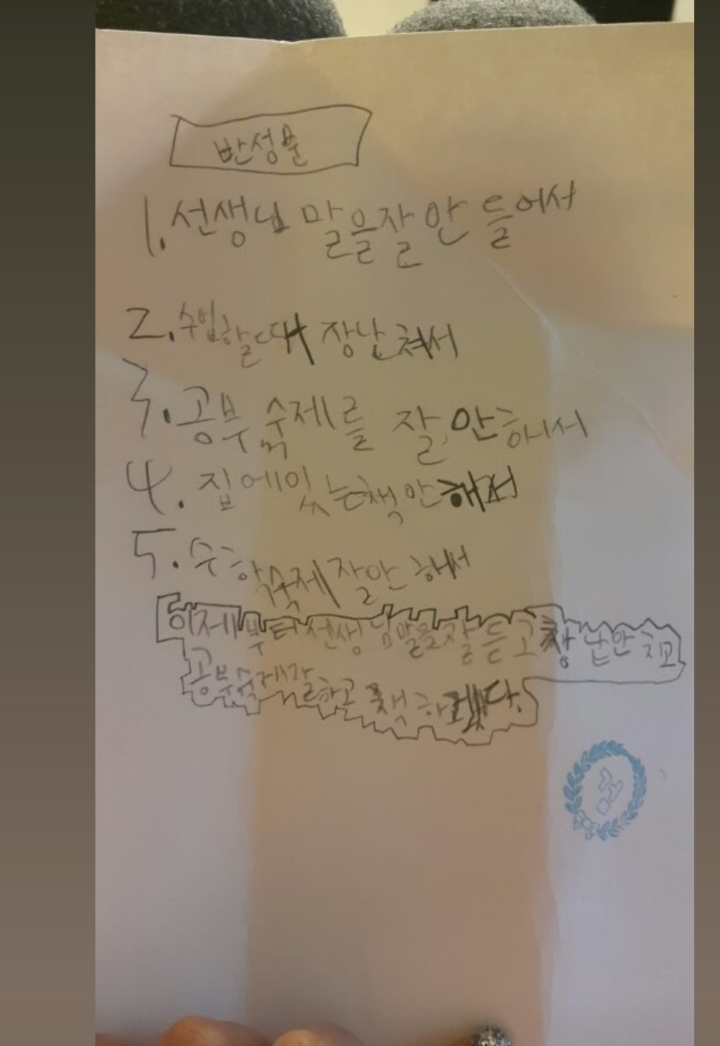 반성문
1. 선생님 말을 잘 안 들어서
2. 수업할 때 장난쳐서
3. 공부 숙제를 잘 안 하니서
4. 집에 있는 책 안 해서
5. 수학숙제 잘 안 해서
이제부터 선생님 말을 잘 듣고 장난 안 치고
공부숙제 잘하고 책 하겠다.